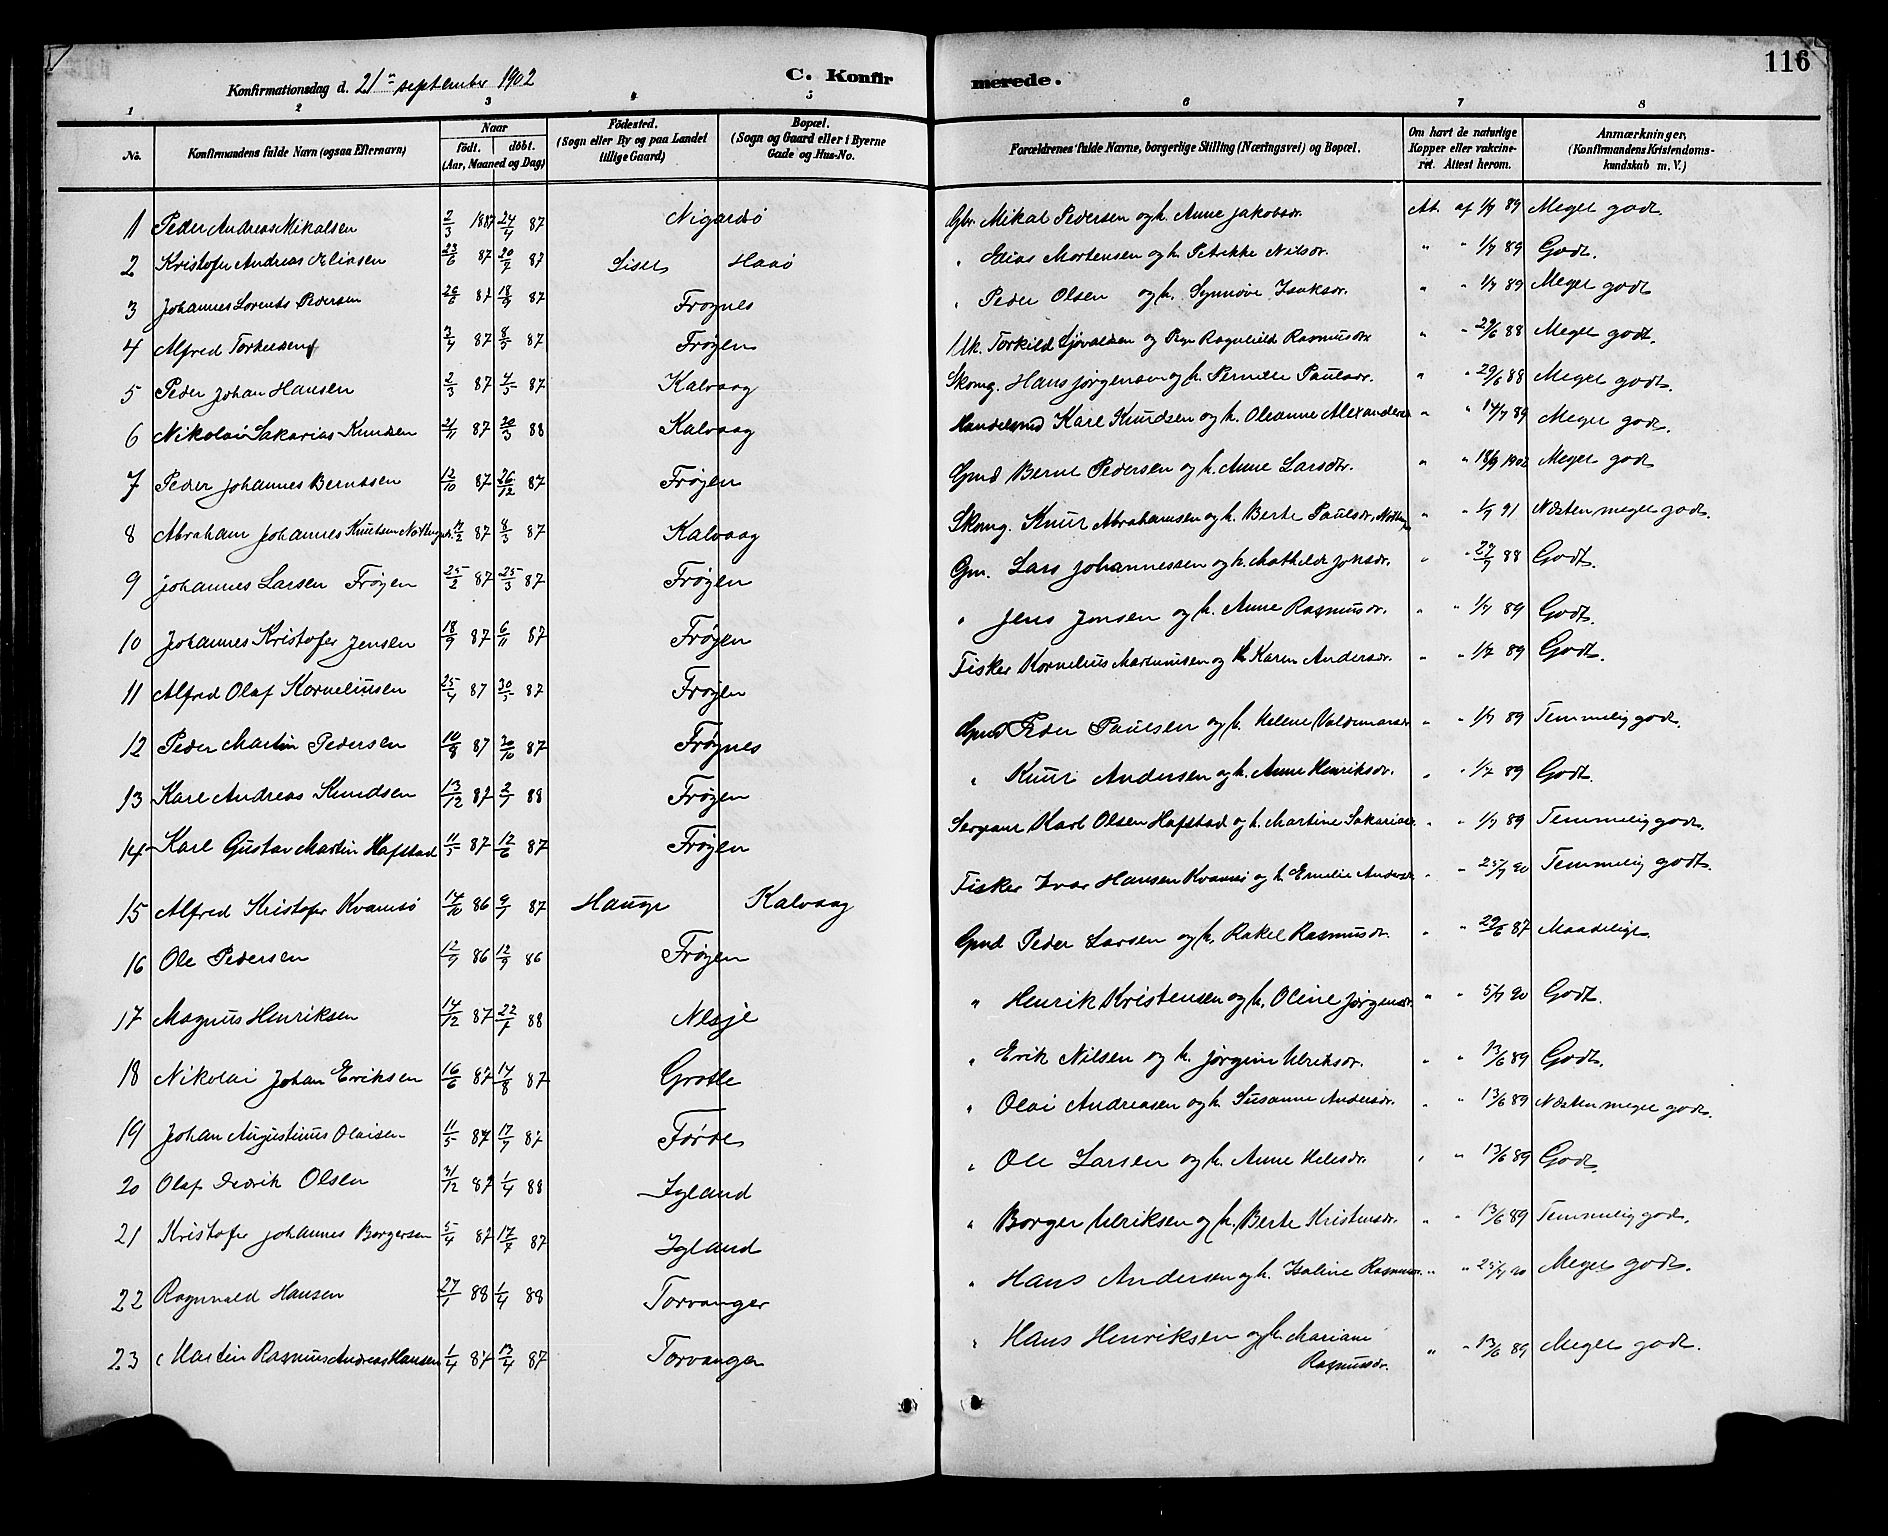 116
Konfirmationsdag d. 21de september 1902
C. Konfirmerede.
1 2 3 4 5 6 7 8
No. Konfirmandens fulde Navn (ogsaa Efternavn) Naar födt. döbt. (Aar, Maaned og Dag) Födested. (Sogn eller By og paa Landet tillige Gaard) Bopæl. (Sogn og Gaard eller i Byerne Gade og Hus-No. Forældrenes fulde Navne, borgerlige Stilling (Næringsvei) og Bopæl. Om havt de naturlige Kopper eller vakcineret. Attest herom. Anmærkninger, (Konfirmandens Kristendomskundskab m. V.)
1 Peder Andreas Mikalsen 2/3 1887 24/4 87 Nigardsö Gbr. Mikal Pedersen og h. Anne Jakobsdr. Att. af 1/7 89 Meget godt.
2 Kristofer Andreas Eliasen 23/6 87 20/7 87 Haaö " Elias Mortensen og h. Petrikke Nilsdr. " " 1/7 89 Godt.
3 Johannes Lorents Pedersen 26/6 87 18/9 87 Frøynes " Peder Olsen og h. Synnöve Isaksdr. " " 1/7 89 Meget godt
4 Alfred Torkildsen 3/4 87 8/5 87 Frøyen Uk. Torkild Sjovoldsen og Pige Ragnhild Rasmusdr. " " 29/6 88 Meget godt.
5 Peder Johan Hansen 2/3 87 4/5 87 Kalvaag Skomg. Hans Jørgensen og h. Pernille Paulsdr. " " 29/6 88 Meget godt.
6 Nikolai Sakarias Knudsen 21/11 87 30/3 88 Kalvaag Handelsmd Karl Knudsen og h. Oleanne Alexandersd " " 14/7 89 Meget godt.
7 Peder Johannes Berntsen 12/10 87 26/12 87 Frøyen Gmd Bernt Pedersen og h. Anne Larsdr. " " 18/9 1902 Meget godt
8 Abraham Johannes Knutsen 87 8/5 87 Kalvaag Skomg. Knut Abrahamsen og h. Berte Paulsdr. " " 1/7 91 Næsten meget godt.
9 Johannes Larsen Frøyen 25/2 87 25/3 87 Frøyen Gm. Lars Johannessen og h. Mathilde Jonsdr. " " 27/7 88 Godt.
10 Johannes Kristofer Jensen 18/9 87 6/11 87 Frøyen " Jens Jonsen og h. Anne Rasmusdr. " " 1/7 89 Godt.
11 Alfred Olaf Korneliusen 25/4 87 30/5 87 Frøyen Fisker Kornelius Martinusen og h. Karen Andersdr. " " 1/7 89 Godt.
12 Peder Martin Pedersen 10/8 87 30/10 87 Frøynes Gmd Peder Paulsen og h. Helene Valdemarsdr " " 1/7 89 Temmelig godt.
13 Karl Andreas Knudsen 13/12 87 2/7 88 Frøyen " Knut Andersen og h. Anne Henriksdr. " " 1/7 89 Godt.
14 Karl Gustav Martin Hafstad 11/5 87 12/6 87 Frøyen Sergeant Karl Olsen Hafstad og h. Martine Sakariasd " " 1/7 89 Temmelig godt.
15 Alfred Kristofer Kvamsö 17/10 86 9/7 87 Hauge Kalvaag Fisker Ivar Hansen Kvamsö og h. Emelie Andersd " " 25/7 90 Temmelig godt.
16 Ole Pedersen 12/7 86 12/9 86 Frøyen Gmd Peder Larsen og h. Rakel Rasmusdr. " " 29/6 87 Maadelige.
17 Magnus Henriksen 14/12 87 22/1 88 Nesje " Henrik Kristensen og h. Oline Jørgensdr. " " 5/7 90 Godt.
18 Nikolai Johan Eriksen 16/6 87 14/8 87 Grotle " Erik Nilsen og h. Jørgine Ulriksdr. " " 13/6 89 Godt.
19 Johan Augustinus Olaisen 11/5 87 17/7 87 Førde " Olai Andreasen og h. Susanne Andersdr. " " 13/6 89 Næsten meget godt.
20 Olaf Didrik Olsen 31/12 87 1/4 88 Igland " Ole Larsen og h. Anne " " 13/6 89 Godt.
21 Kristofer Johannes Borgersen 5/4 87 17/7 87 Igland " Borger Ulriksen og h. Berte Kristensdr. " " 13/6 89 Temmelig godt.
22 Ragnvald Hansen 27/1 88 1/4 88 Torvanger " Hans Andersen og h. Isaline Rasmusdr. " " 25/7 90 Meget godt.
23 Martin Rasmus Andreas Hansen 1/4 87 13/4 87 Torvanger " Hans Henriksen og h. Mariane Rasmusdr. " " 13/6 89 Meget godt.